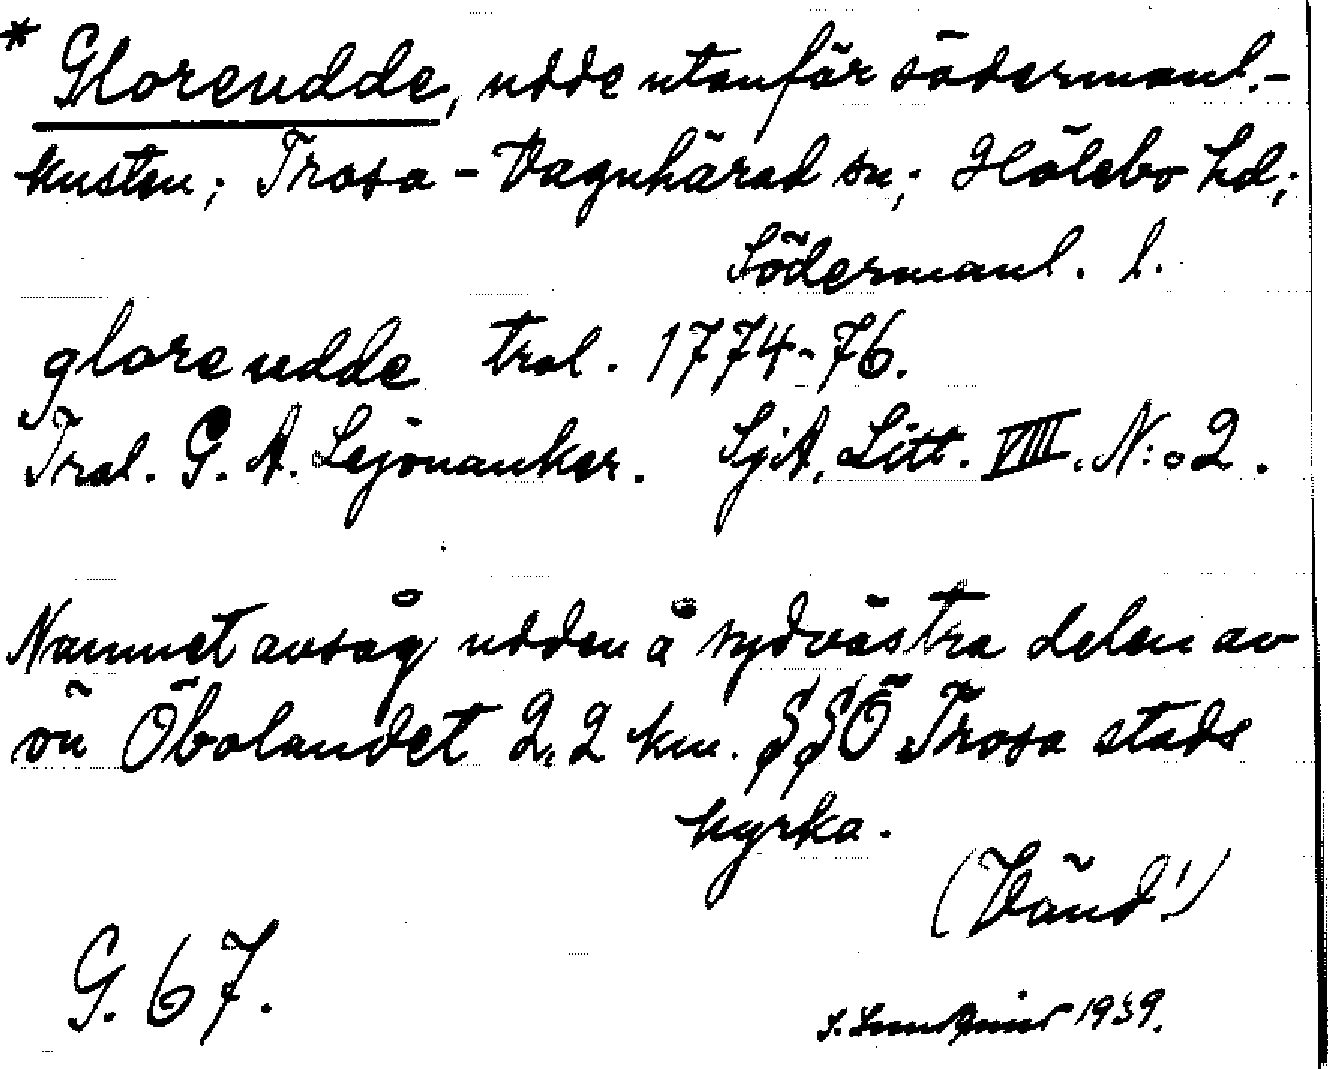 * Gloreudde, udde utanför södermanl.-
kusten; Trosa - Vagnhärad sn; Hölebo hd;
Södermanl. l.
glore udde tral. 1774-76.
Tral. G. A. Lejonanker. SjA. Litt. VIII. N:o 2.
Namnet avsåg udden å sydvästra delen av
ön Öbolandet 2,2 km. SSÖ Trosa stads
kyrka.
(Vänd!)
G. 67.
1939.